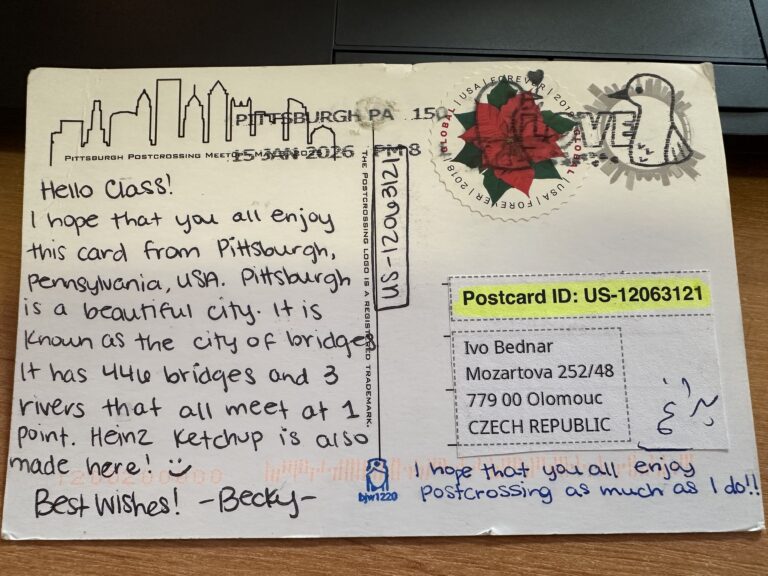 PITTSBURGH PA 150
15 JAN 2026 PM 8
Hello Class!
I hope that you all enjoy
this card from Pittsburgh,
Pennsylvania, USA. Pittsburgh
is a beautiful city. It is
known as the city of bridges
It has 446 bridges and 3
rivers that all meet at 1
point. Heinz Ketchup is also
made here!
Best Wishes! -Becky-
THE POSTCROSSING LOGO IS A REGISTERED TRADEMARK.
US-12063121
GLOBAL | USA | FOREVER | 2018
LOVE
Postcard ID: US-12063121
Ivo Bednar
Mozartova 252/48
779 00 Olomouc
CZECH REPUBLIC
bjw1220
I hope that you all enjoy
postcrossing as much as I do!!